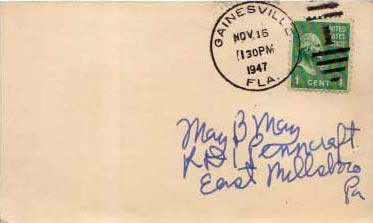 GAINESVILLE
NOV. 16
1130PM
1947
FLA.
UNITED
STATES
1 CENT 1
May B May
R D 1 Penncraft
East Millsboro
Pa